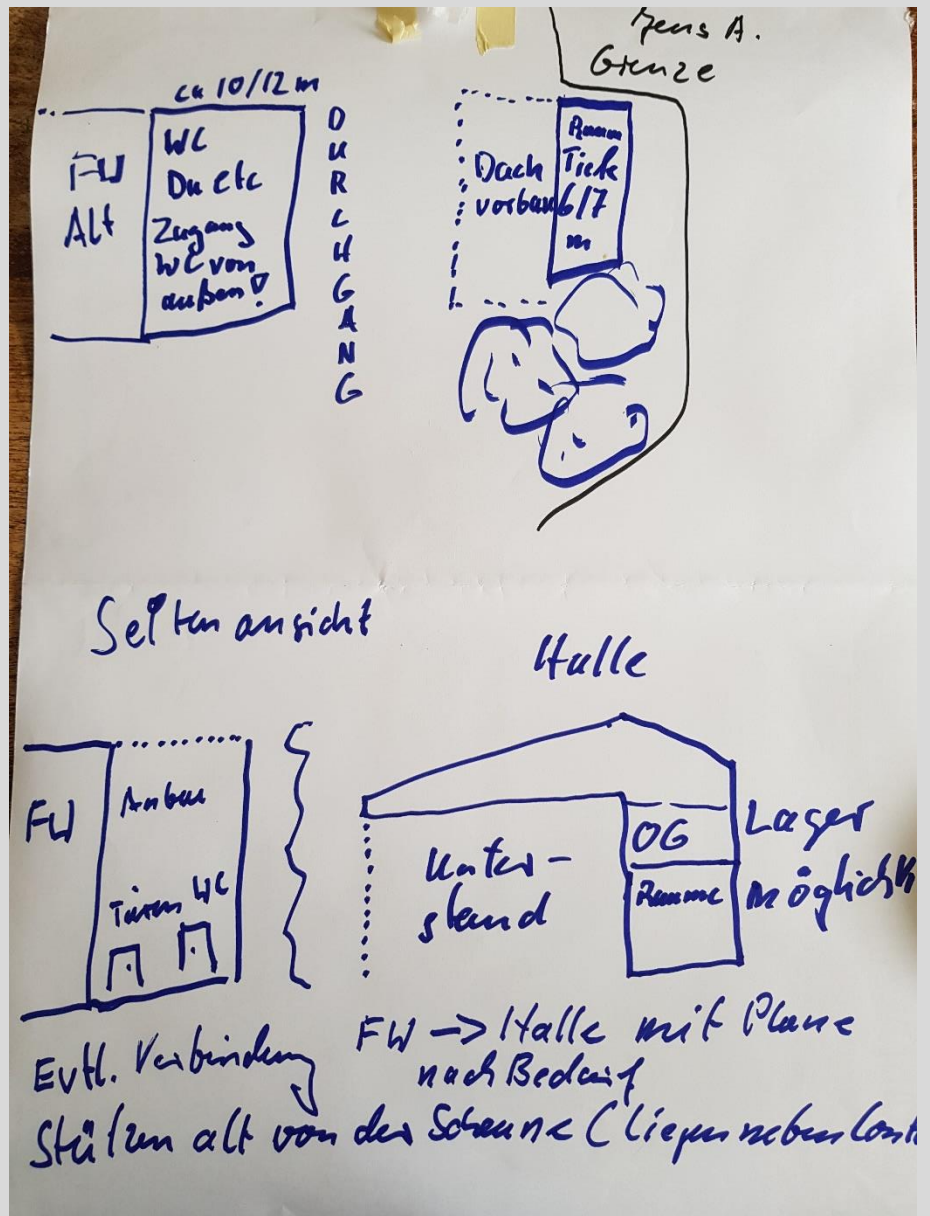 Jens A.
Grenze
ca 10/12 m
FW
Alt
WC
Du etc
Zugang
WC von
außen!
DURCHGANG
Dach
vorbau
Räume
Tiefe
6/7
m
Seitenansicht
Halle
FW
Anbau
Türen WC
Unter-
stand
OG
Räume
Lager
möglich
FW -> Halle mit Plane
nach Bedarf
Evtl. Verbindung
Stützen alt von der Scheune (liegen neben Cont